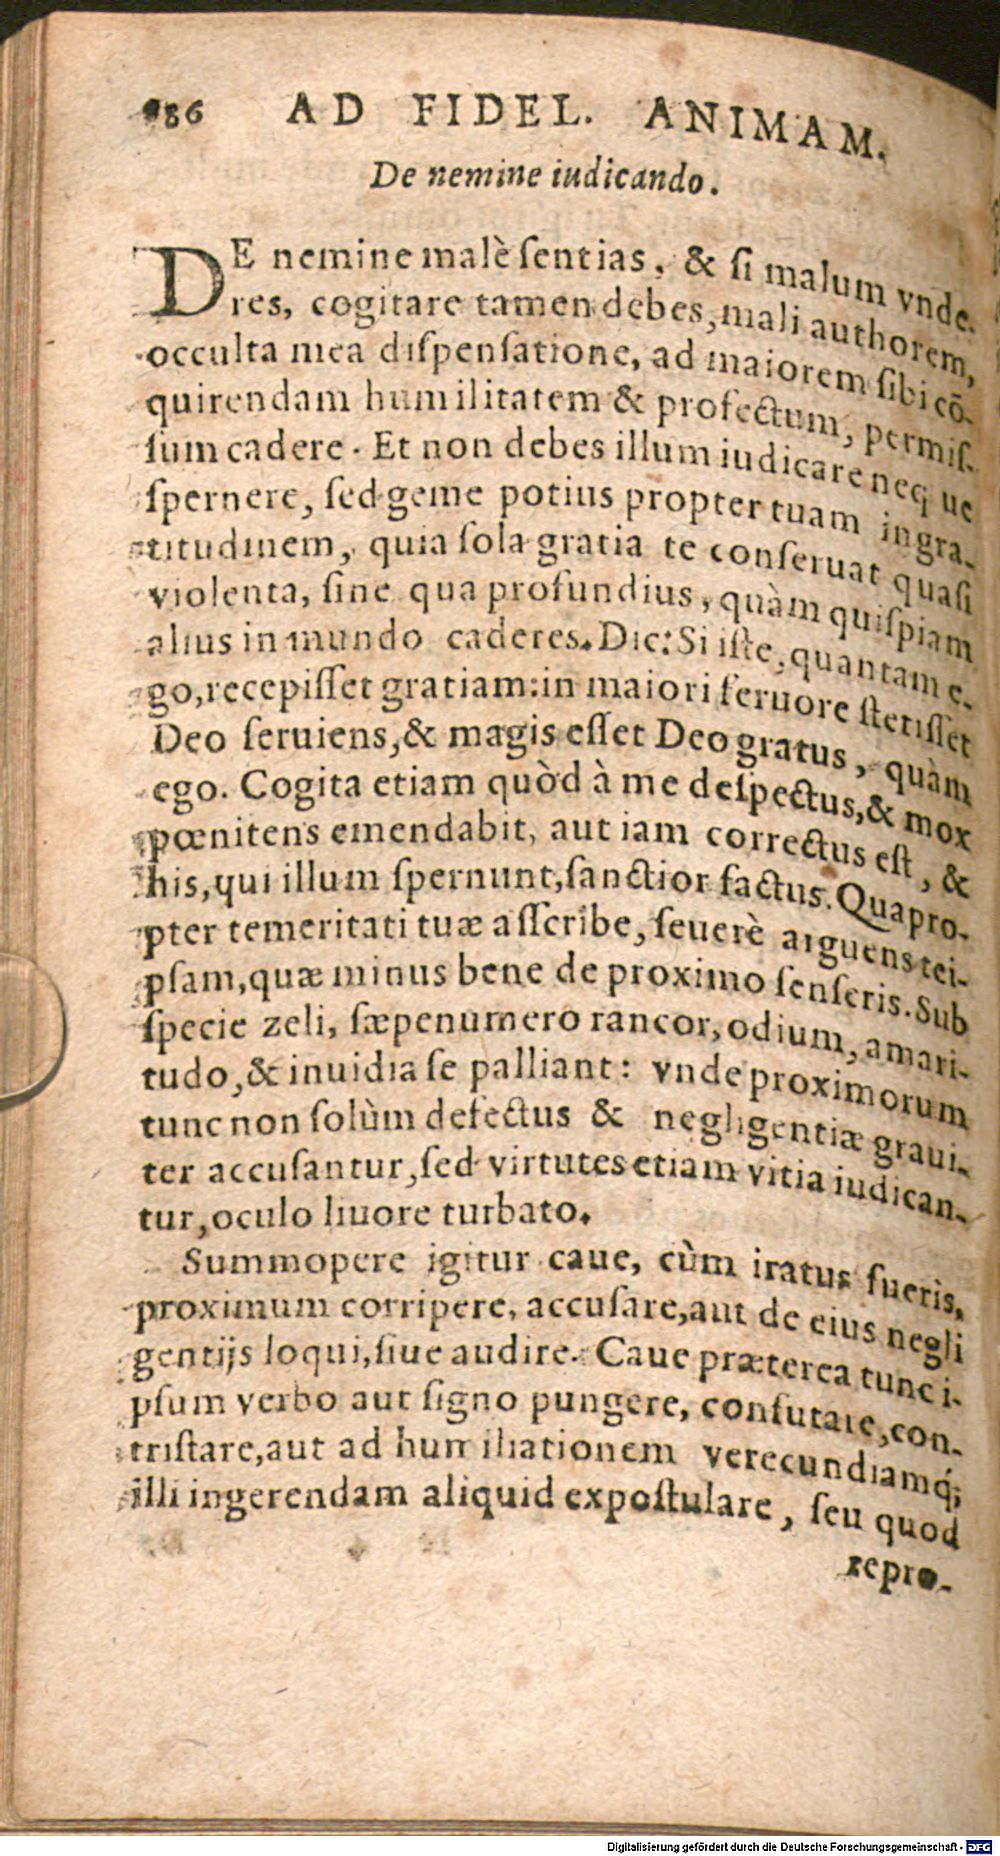 186 AD FIDEL. ANIMAM.
De nemine iudicando.
DE nemine malè ſentias, & ſi malum vnde-
res, cogitare tamen debes, mali authorem,
occulta mea diſpenſatione, ad maiorem ſibi cō-
quirendam humilitatem & profectum, permiſ-
ſum cadere. Et non debes illum iudicare neq́ue
ſpernere, ſed geme potius propter tuam ingra-
titudinem, quia ſola gratia te conſeruat quaſi
violenta, ſine qua profundius, quàm quiſpiam
alius in mundo caderes. Dic: Si iſte, quantam e-
go, recepiſſet gratiam: in maiori feruore ſtetiſſet
Deo ſeruiens, & magis eſſet Deo gratus, quàm
ego. Cogita etiam quòd à me deſpectus, & mox
pœnitens emendabit, aut iam correctus eſt, &
his, qui illum ſpernunt, ſanctior factus. Quapro-
pter temeritati tuæ aſſcribe, ſeuerè arguens tei-
pſam, quæ minus bene de proximo ſenſeris. Sub
ſpecie zeli, ſæpenumero rancor, odium, amari-
tudo, & inuidia ſe palliant: vnde proximorum
tunc non ſolùm defectus & negligentiæ graui-
ter accuſantur, ſed virtutes etiam vitia iudican-
tur, oculo liuore turbato.
Summopere igitur caue, cùm iratus fueris,
proximum corripere, accuſare, aut de eius negli
gentijs loqui, ſiue audire. Caue præterea tunc i-
pſum verbo aut ſigno pungere, confutare, con-
triſtare, aut ad humiliationem verecundiamq́;
illi ingerendam aliquid expoſtulare, ſeu quod
repro-
Digitalisierung gefördert durch die Deutsche Forschungsgemeinschaft - DFG